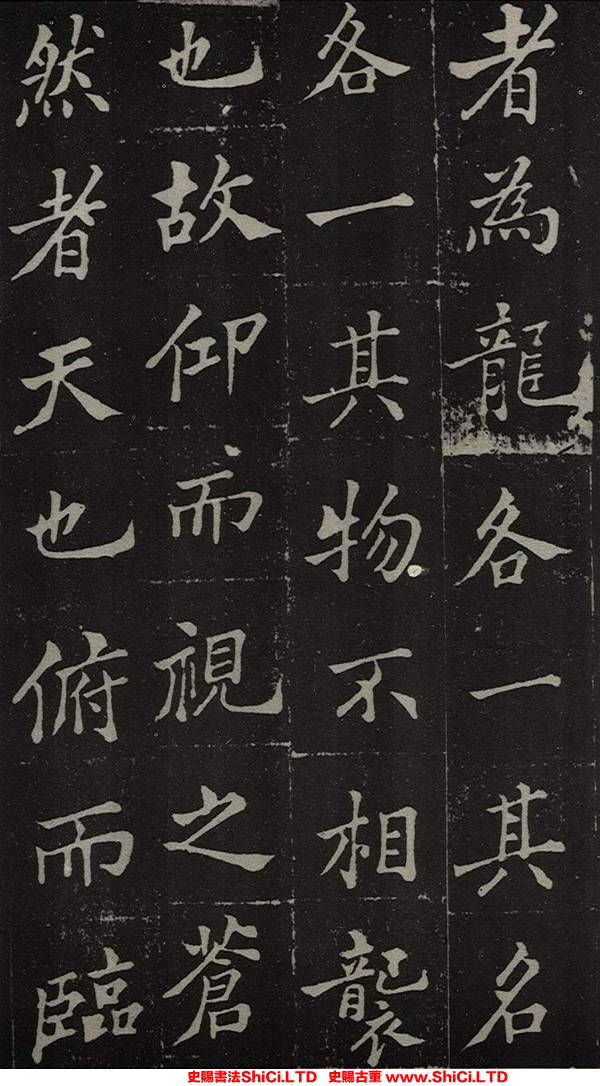 者為龍各一其名
各一其物不相襲
也故仰而視之蒼
然者天也俯而臨
史賜書法ShiCi.LTD 史賜古董 www.ShiCi.LTD